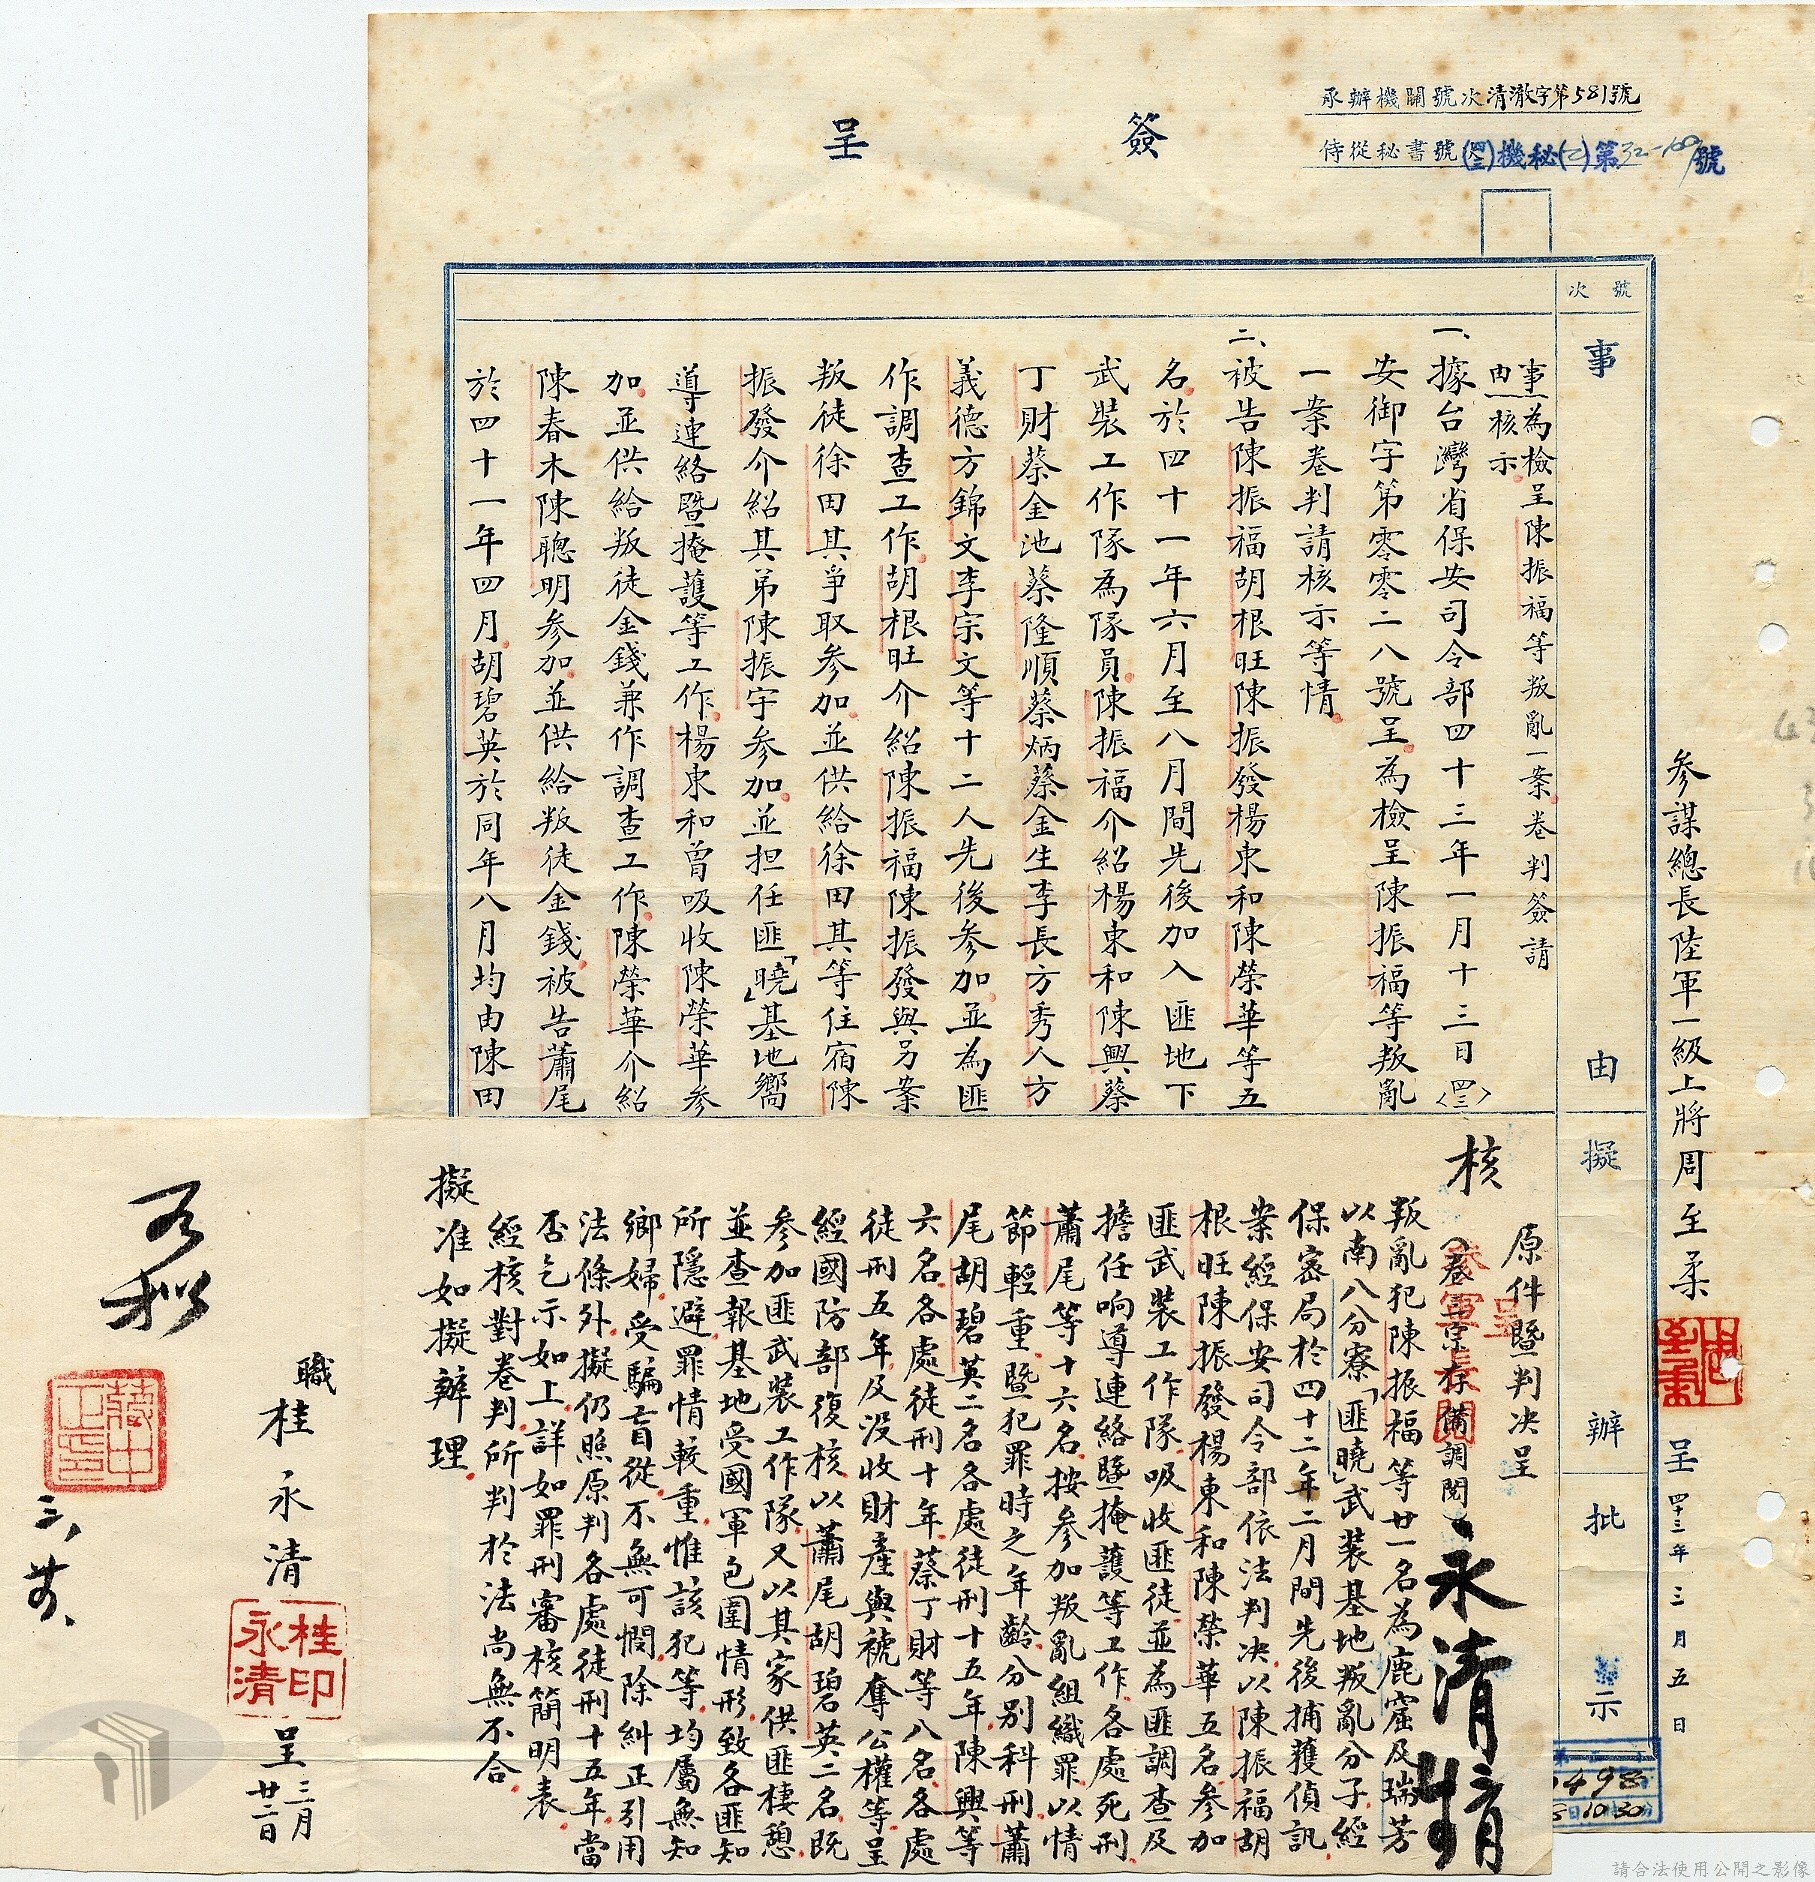 承辦機關號次清澈字第581號
侍從秘書號(四三)機秘(乙)第32-160號
簽呈
號次
事由
擬辦
批示
參謀總長陸軍一級上將周至柔
呈 四十三年三月五日
事由 為檢呈陳振福等叛亂一案卷判簽請
核示。
一、據台灣省保安司令部四十三年一月十三日〈四三〉
安御字第零零二八號呈。為檢呈陳振福等叛亂
一案卷判請核示等情。
二、被告陳振福胡根旺陳振發楊東和陳榮華等五
名。於四十一年六月至八月間先後加入匪地下
武裝工作隊為隊員。陳振福介紹楊東和陳興蔡
丁財蔡金池蔡隆順蔡炳蔡金生李長方秀人方
義德方錦文李宗文等十二人先後參加。並為匪
作調查工作。胡根旺介紹陳振福陳振發與另案
叛徒徐田其爭取參加。並供給徐田其等住宿。陳
振發介紹其弟陳振宇參加。並担任匪「曉」基地嚮
導連絡暨掩護等工作。楊東和曾吸收陳榮華參
加。並供給叛徒金錢兼作調查工作。陳榮華介紹
陳春木陳聰明參加。並供給叛徒金錢。被告蕭尾
於四十一年四月。胡碧英於同年八月均由陳田
原件暨判決呈
核
(卷宗存備調閱)
呈
參軍長閱
永清
叛亂犯陳振福等廿一名為鹿窟及瑞芳
以南八分寮「匪曉」武裝基地叛亂分子。經
保密局於四十二年二月間先後捕獲偵訊。
案經保安司令部依法判決。以陳振福胡
根旺陳振發楊東和陳榮華五名。參加
匪武裝工作隊。吸收匪徒。並為匪調查及
擔任响導連絡暨掩護等工作。各處死刑。
蕭尾等十六名。按參加叛亂組織罪。以情
節輕重。暨犯罪時之年齡。分別科刑。蕭
尾胡碧英二名各處徒刑十五年。陳興等
六名。各處徒刑十年。蔡丁財等八名。各處
徒刑五年。及沒收財產與褫奪公權等。呈
經國防部復核。以蕭尾胡碧英二名。既
參加匪武裝工作隊。又以其家供匪棲憩。
並查報基地受國軍包圍情形。致各匪知
所隱避。罪情較重。惟該犯等。均屬無知
鄉婦。受騙盲從。不無可憫。除糾正引用
法條外。擬仍照原判各處徒刑十五年。當
否乞示如上。詳如罪刑審核簡明表。
經核對卷判。所判於法尚無不合。
擬准如擬辦理。
職桂永清
桂永清印
呈 三月廿二日
蔣中正印